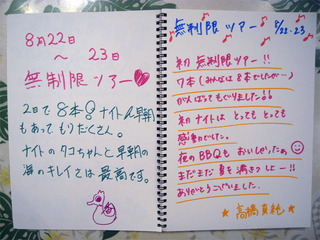 8月22日
～ 23日
無制限ツアー
2日で8本！ナイトに早朝
もあってもりだくさん。
ナイトのタコちゃんと早朝の
海のキレイさは最高です。
無制限ツアー 8/22-23
初 無制限ツアー!!
7本(みんなは8本でしたが…)
がんばってもぐりました!!
初ナイトは とっても とっても
感動でした。
夜のBBQも おいしかったぁ
まだまだ夏を満きつしよー!!
ありがとうございました。
★ 高橋真純 ★